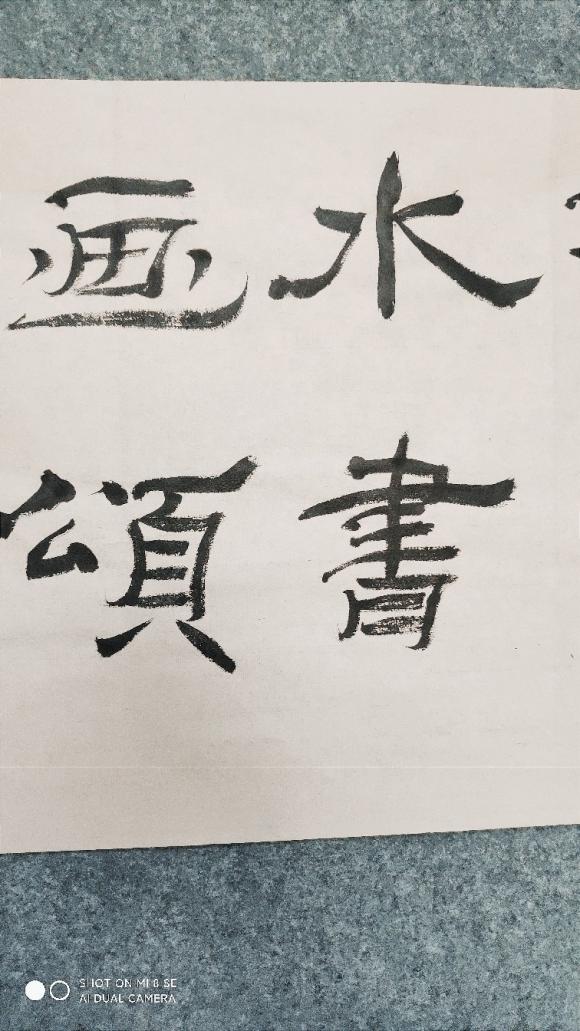 水書
画頌
SHOT ON MI 8 SE
AI DUAL CAMERA